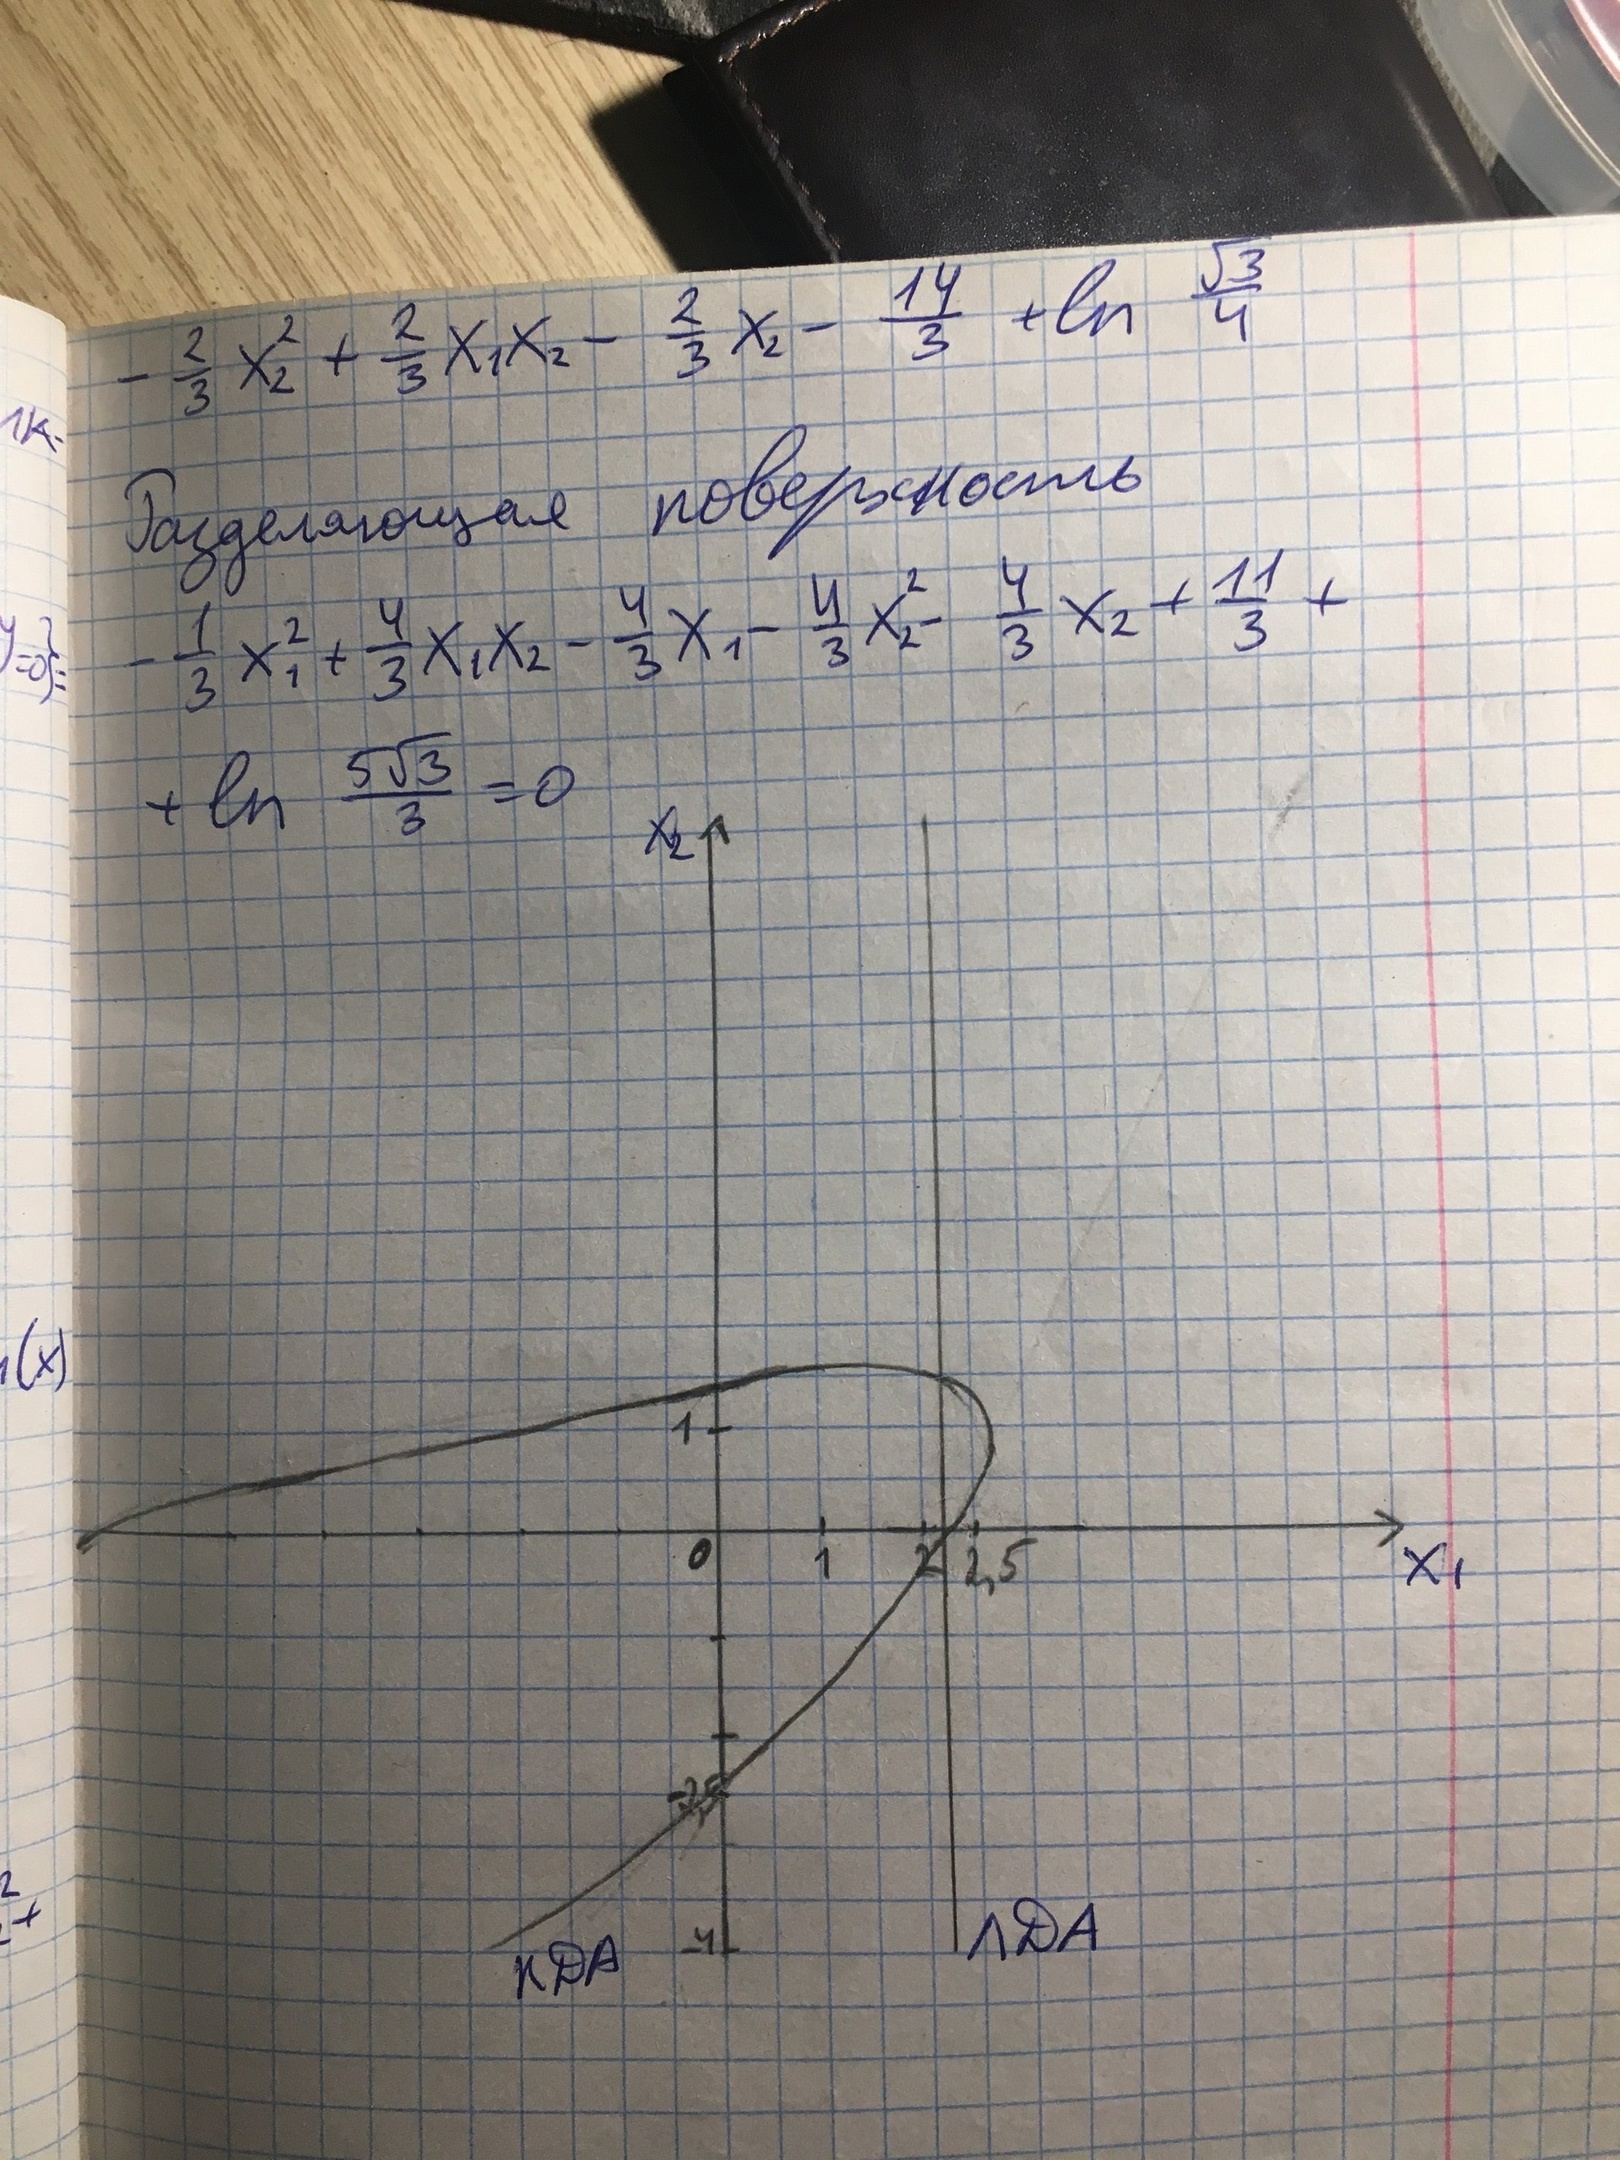 - 2/3 x₂² + 2/3 x₁x₂ - 2/3 x₂ - 14/3 + ln √3/4
1к-
Разделяющая поверхность
- 1/3 x₁² + 4/3 x₁x₂ - 4/3 x₁ - 4/3 x₂² - 4/3 x₂ + 11/3 +
=0}=
+ ln 5√3/3 = 0
x₂
(x)
1
0 1 2 2,5
x₁
-2,5
2
+
-4
КДА ЛДА